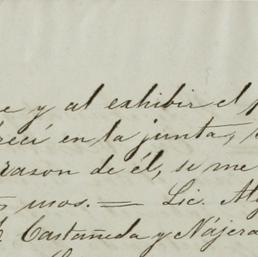 e y al exhibir el p
reci en la junta,
razon de él, se me
mos. = Lic. Al
Castañeda y Nájera